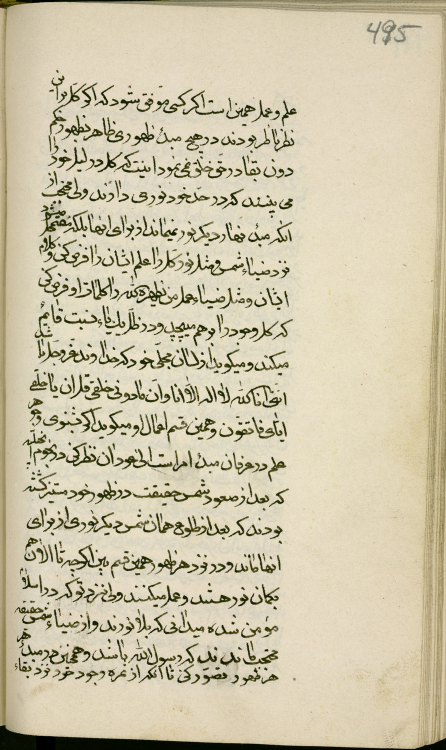 495
علم و عمل همین است اگر کسی موفق شود که اگر کل براین
نظر ناظر بودند در هیچ مبدء ظهوری ظاهر بظهور حکم
دون بقاء در حق خلق نمی نمود اینست که کل در لیل خود را
می بینند که در حد خود نوری دارند ولی محتجب از
آنکه مبدء نهار دیگر نور نمیماند از برای آنها بلکه
نزد ضیاء شمس و مثل نور کل را علم ایشان را فرض کن و کلام
ایشان و مثل ضیاء عمل من یظهره الله را کلمات او فرض کن
که کل وجود را بر هم میپیچد و در ظل یک یاء نسبت قائم
میکند و میگوید از لسان مجلی خود که خداوند عز و جل باشد
اننی انا الله لا اله الا انا و ان مادونی خلقی قل ان یا خلقی
ایای فاتقون و همین قسم اعمال او میگوید اگر بشنوی و
علم در عرفان مبدء امر است الی العود ان نظر کن در نجوم
که بعد از صعود شمس حقیقت در ظهور خود مستنیر گشته
بودند که بعد از طلوع همان شمس دیگر نوری از برای
آنها نماند و در نزد هر ظهور همین قسم ببین اگرچه تا الآن هم
بگمان نور هستند و عمل میکنند ولی نزد تو که در اسلام
مؤمن شده میدانی که بلا نورند و از ضیاء شمس حقیقة
محتجب ماندند که رسول الله باشد و همچنین در مبدء هر
هر ظهور تصور کن تا آنکه از ثمره وجود خود نزد بقاء